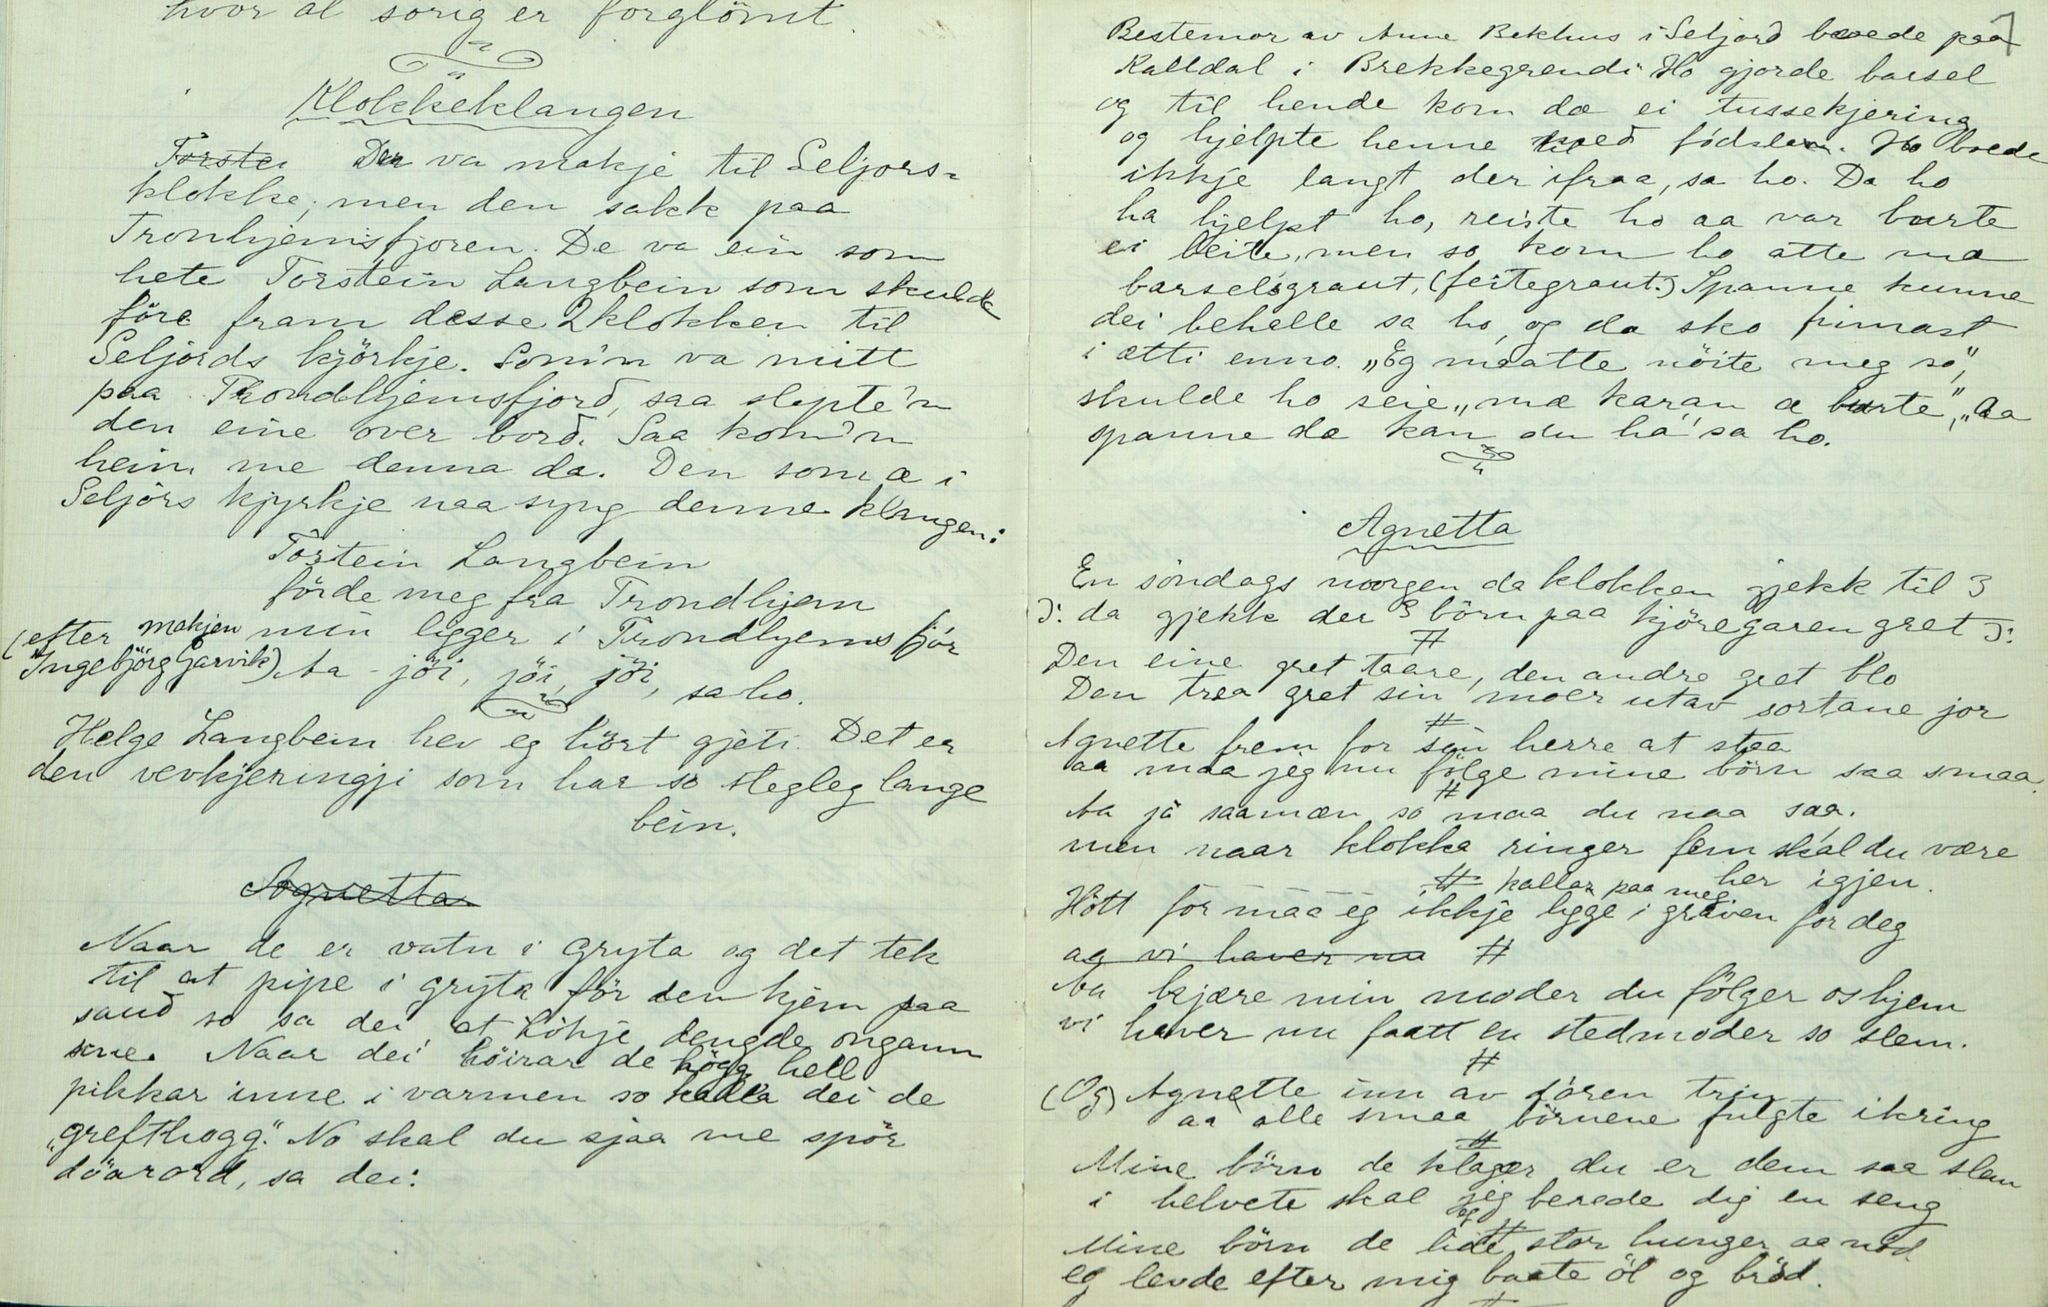 hvor al sorig er forglömt.
Klokkeklangen
Torstei Der va makje til Seljors-
klokke; men den sakk paa
Tronhjemsfjoren. De va ein som
hete Torstein Langbein som skulde
före fram desse 2 klokken til
Seljords kjörkje. Som'n va mitt
paa Trondhjemsfjord, saa slepte'n
den eine over bord. Saa kom'n
heim me denna da. Den som æ i
Seljörs kjyrkje naa syng denne klangen:
Torstein Langbein
förde meg fra Trondhjem
makjen min ligger i Trondhjems fjör
(efter Ingebjörg Garvik). Aa - jöi, jöi, jöi, sa ho.
Helge Langbein hev eg hört gjeti. Det er
den vevkjeringji som har so stegleg lange
bein.
Agnetta
Naar de er vatn i gryta og det tek
til at pipe i gryta för den kjem paa
saud so sa dei at Kökje dengde ongann
sine. Naar dei höirar de högg hell
pikkar inne i varmen so kalla dei de
"grefthogg". No skal du sjaa me spör
döarord, sa dei:
7
Bestemor av Anne Bekhus i Seljord boede paa
Kalldal i Brekkegrendi. Ho gjorde barsel
og til hende kom da ei tussekjering
og hjelpte henne med födslen. Ho boede
ikkje langt der ifraa, sa ho. Da ho
ha hjelpt ho, reiste ho aa var burte
ei leite, men so kom ho atte mæ
barselsgraut, (feitegraut.) Spanne kunne
dei behelle sa ho, og da sko finnast
i ætti enno. "Eg maatte nöite meg so",
skulde ho seie, "mæ karan æ burte", "Aa
spanne da kan du há' sa ho.
Agnetta
En söndags morgen da klokken gjekk til 3
:/: da gjekk der 3 börn paa kjöregaren gret :/:
#
Den eine gret taare, den andre gret blo
Den trea gret sin moer utav sortane jor
#
Agnette frem for sin herre at staa
aa maa jeg nu fölge mine börn saa smaa.
#
Aa já saamæn so maa du naa saa.
men naar klokka ringer fem skal du være
her igjen.
# kallar paa meg
Hött för maa eg ikkje ligge i graven for deg
og vi haver nu #
Aa kjære min moder du fölger os hjem
vi haver nu faatt en stedmoder so slem.
#
(Og) Agnette inn av dören trin
aa alle smaa börnene fulgte ikring
#
Mine börn de klager du er dem saa slem
i helvete skal jeg berede dig en seng
eg #
Mine börn de lide stor hunger aa nöd
eg levde efter mig baate öl og bröd.